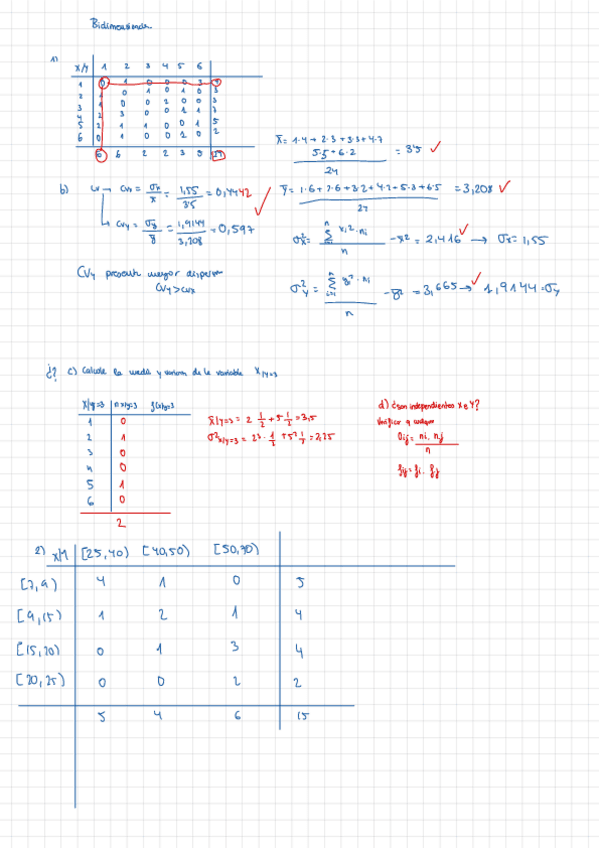 Bidimensionales
1)
X/Y 1 2 3 4 5 6
1 0 1 0 0 0 3 4
2 1 0 1 0 3
3 1 0 0 2 0 0 3
4 2 3 0 0 1 1
5 2 1 1 0 0 1 5
6 0 1 0 0 1 0 2
6 6 2 2 3 5 24
X̄ = 1·4 + 2·3 + 3·3 + 4·7
5·5 + 6·2 = 3'5 ✓
24
b) CV → CVx = σx/x̄ = 1,55/3'5 = 0,4442 ✓
Ȳ = 1·6 + 2·6 + 3·2 + 4·2 + 5·3 + 6·5 = 3,208 ✓
24
↳ CVy = σy/ȳ = 1,9144/3,208 = 0,597
σ²x = Σ xi²·ni / n − x̄² = 2,416 ✓ → σx = 1,55
CVy presenta mayor dispersión
CVy > CVx
σ²y = Σ yi²·ni / n − ȳ² = 3,665 ✓ → 1,9144 = σy
¿? c) Calcule la media y varianza de la variable X/y=3
X/y=3 n x/y=3 f(x)y=3
1 0
2 1
3 0
4 0
5 1
6 0
2
X̄/y=3 = 2 1/2 + 5 1/2 = 3,5
σ²x/y=3 = 2²· 1/2 + 5² 1/2 = 2,25
d) ¿Son independientes X e Y?
Verificar q cumplan
nij = ni · nj
n
fij = fi · fj
2) X/Y [25,40) [40,50) [50,70)
[7,9) 4 1 0 5
[9,15) 1 2 1 4
[15,20) 0 1 3 4
[20,25) 0 0 2 2
5 4 6 15